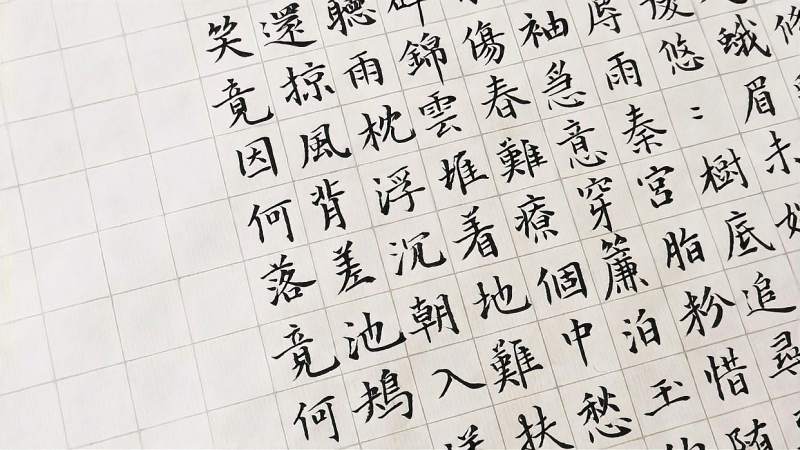 修
蛾眉未
悠：樹底追尋
雨秦宮脂粉惜
袖急意穿簾泊玉
傷春難療個中愁
錦雲堆着地難扶
聽雨枕浮沉朝入
還掠風背差池
笑竟因何落竟何